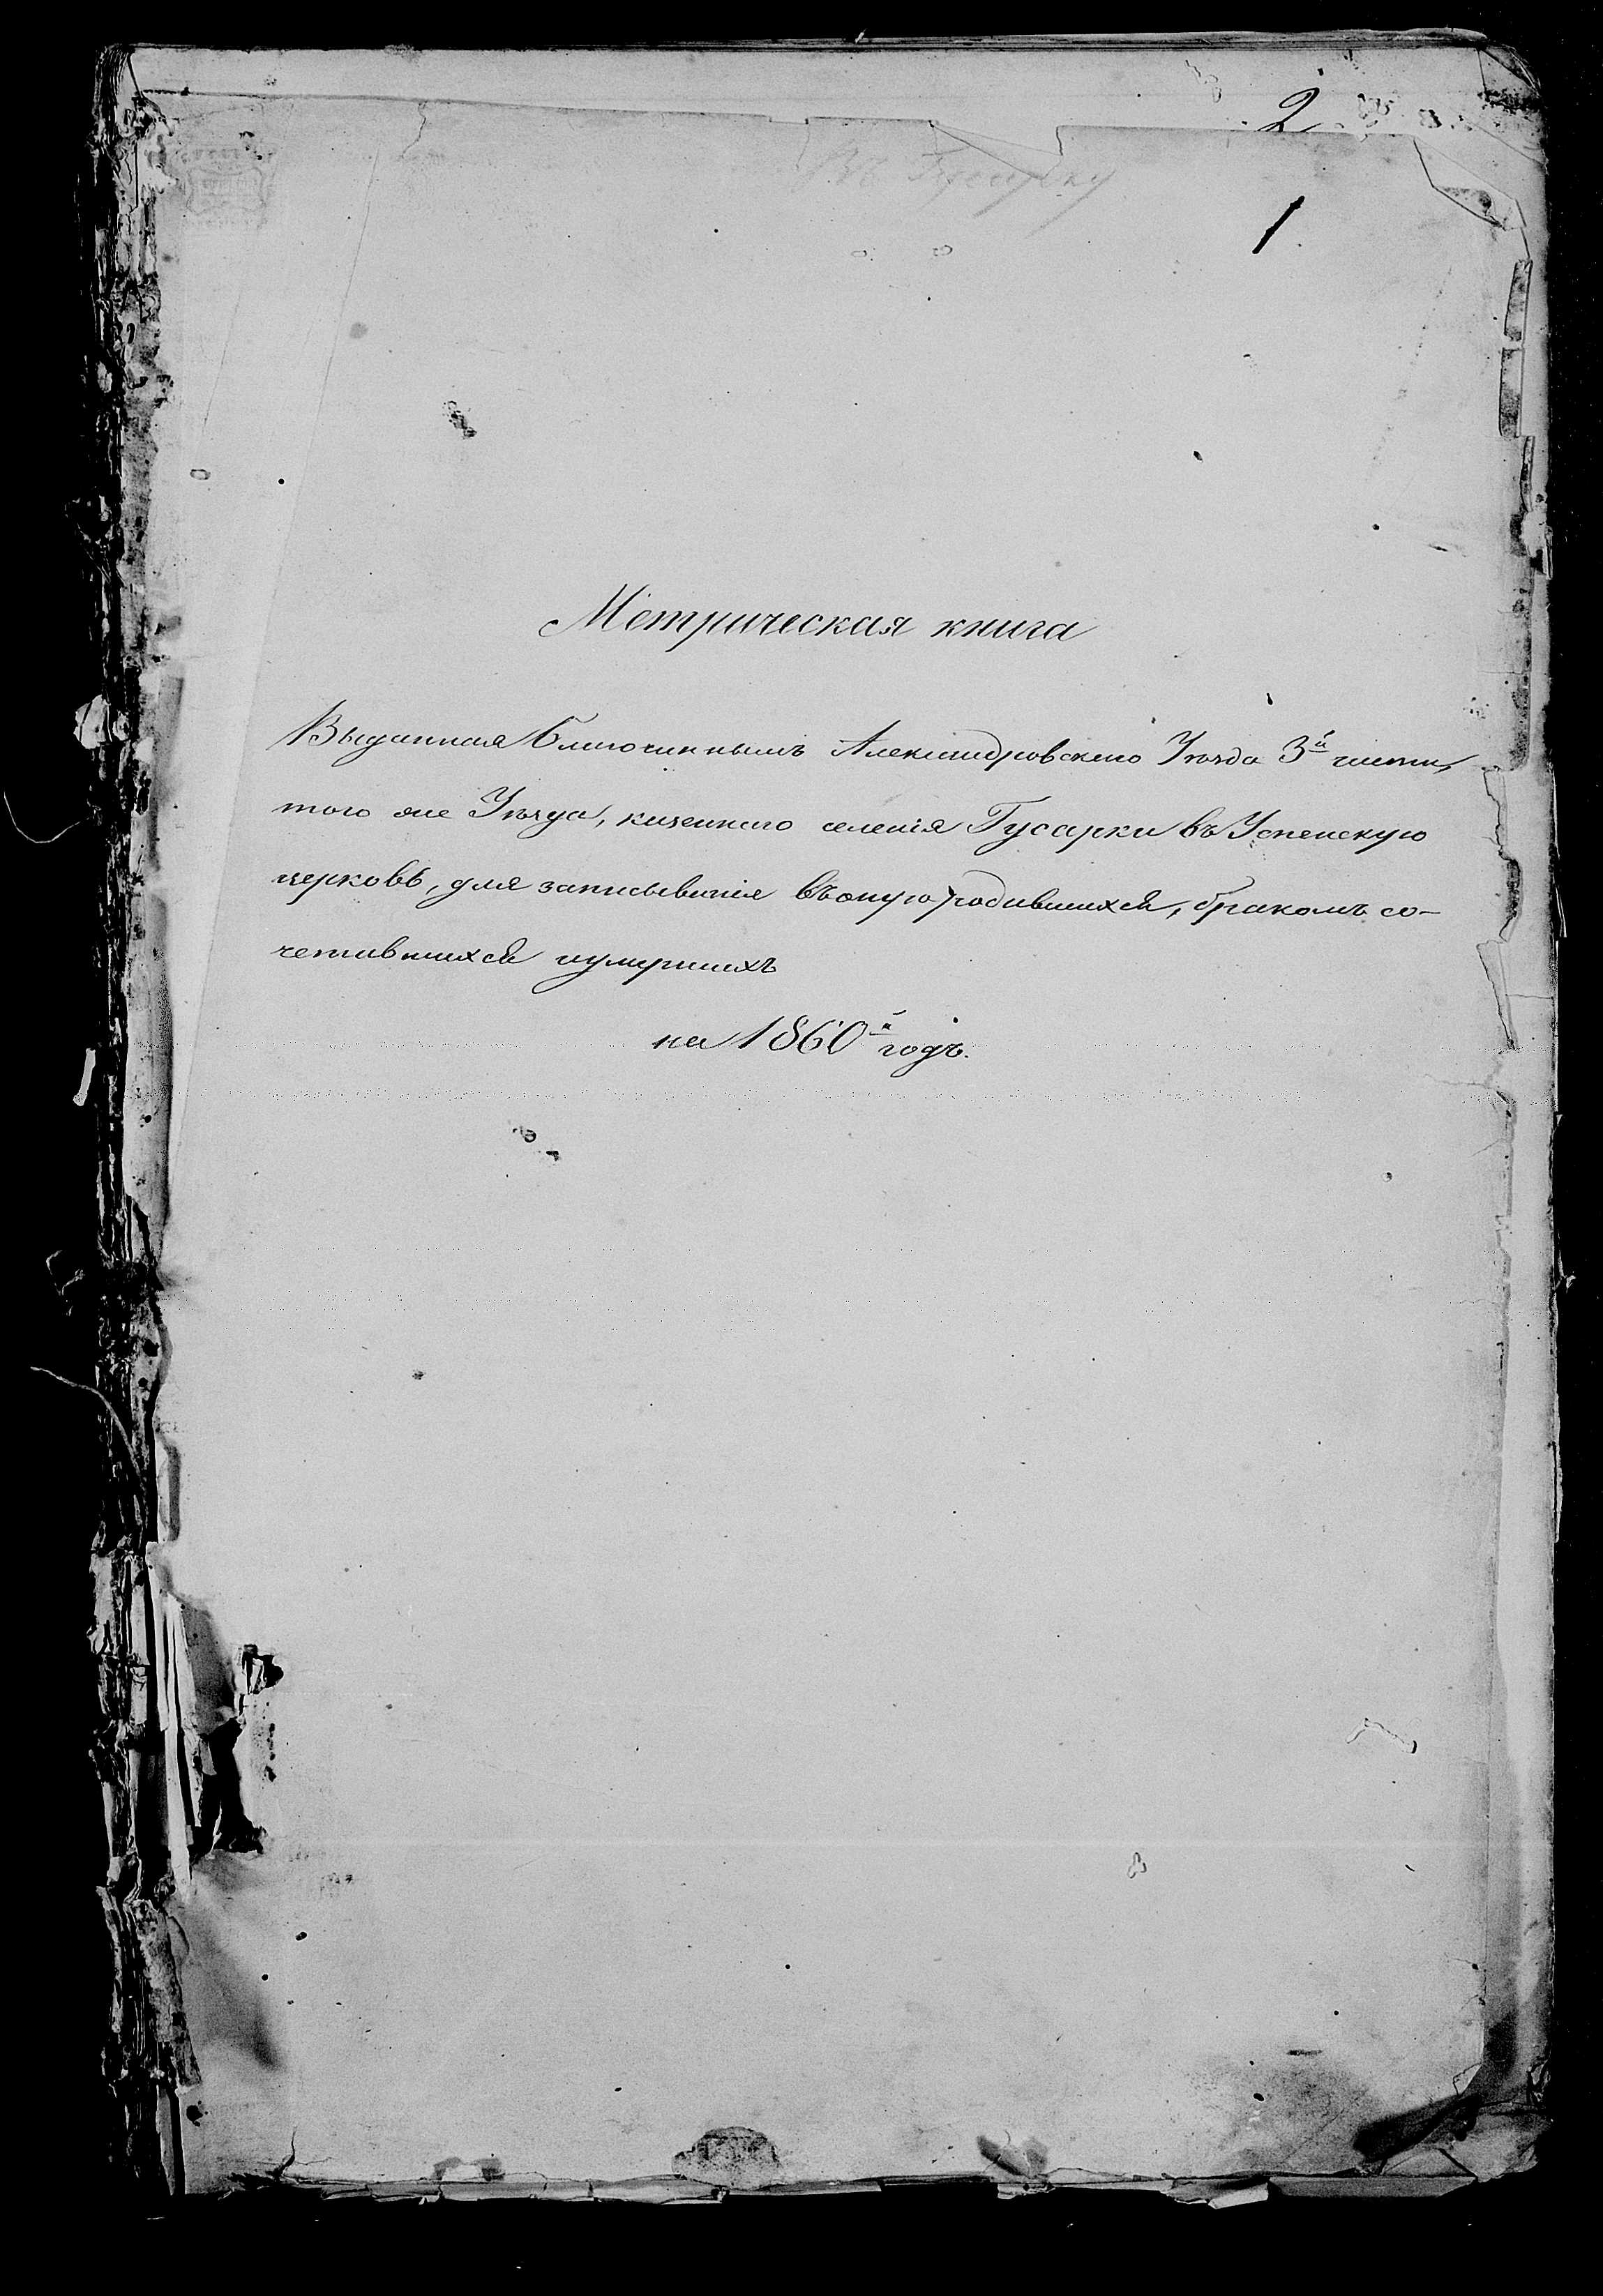 2
Въ Гусарку
1
Метрическая книга
Выданная Благочиннымъ Александровского Уѣзда 3й части,
того же Уѣзда, казенного селенія Гусарки въ Успенскую
церковь, для записыванія въ оную родившихся, бракомъ со-
четавшихся и умершихъ
на 1860й годъ.